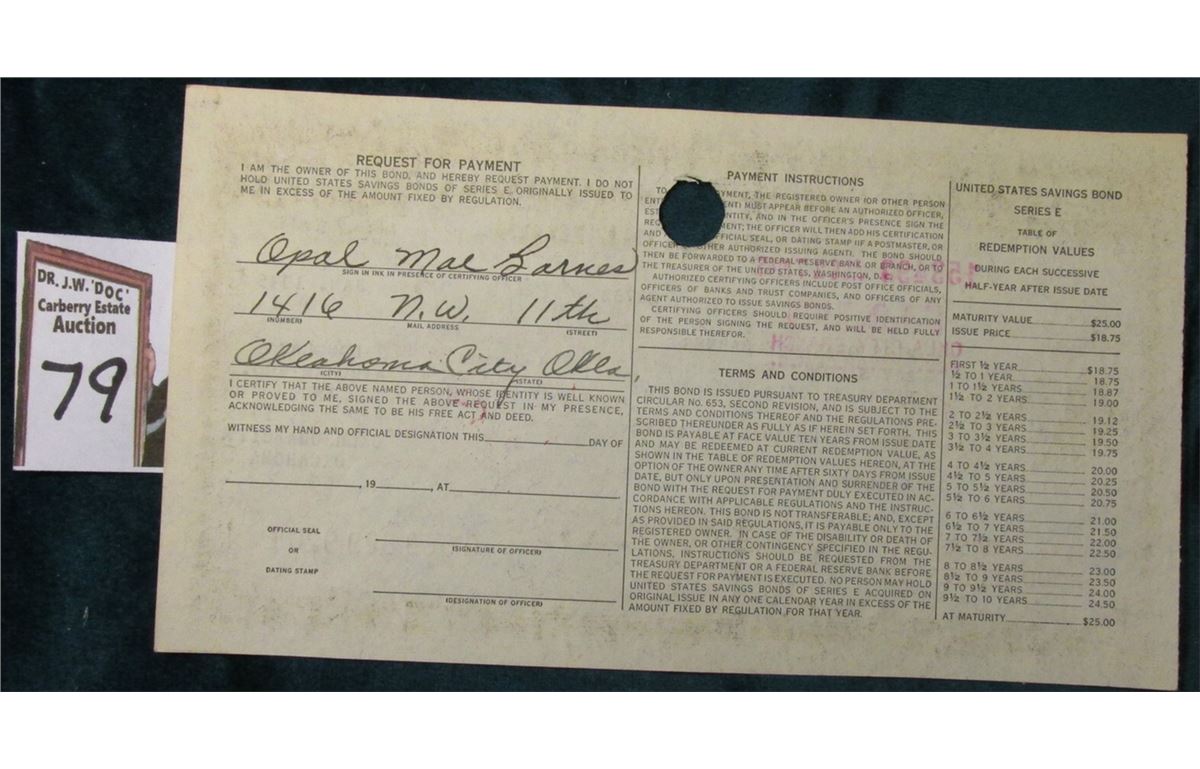 DR. J.W. 'DOC'
Carberry Estate
Auction
79
REQUEST FOR PAYMENT
I AM THE OWNER OF THIS BOND, AND HEREBY REQUEST PAYMENT. I DO NOT
HOLD UNITED STATES SAVINGS BONDS OF SERIES E, ORIGINALLY ISSUED TO
ME IN EXCESS OF THE AMOUNT FIXED BY REGULATION.
Opal Mae Barnes
SIGN IN INK IN PRESENCE OF CERTIFYING OFFICER
1416 N.W. 11th
(NUMBER) MAIL ADDRESS (STREET)
Oklahoma City Okla,
(CITY) (STATE)
I CERTIFY THAT THE ABOVE NAMED PERSON, WHOSE IDENTITY IS WELL KNOWN
OR PROVED TO ME, SIGNED THE ABOVE REQUEST IN MY PRESENCE,
ACKNOWLEDGING THE SAME TO BE HIS FREE ACT AND DEED.
WITNESS MY HAND AND OFFICIAL DESIGNATION THIS DAY OF
, 19 , AT
OFFICIAL SEAL
OR
DATING STAMP
(SIGNATURE OF OFFICER)
(DESIGNATION OF OFFICER)
PAYMENT INSTRUCTIONS
TO YMENT, THE REGISTERED OWNER (OR OTHER PERSON
ENT ENT) MUST APPEAR BEFORE AN AUTHORIZED OFFICER,
EST NTITY, AND IN THE OFFICER'S PRESENCE SIGN THE
REQ MENT; THE OFFICER WILL THEN ADD HIS CERTIFICATION
AND FFICIAL SEAL, OR DATING STAMP (IF A POSTMASTER, OR
OFFICER OTHER AUTHORIZED ISSUING AGENT). THE BOND SHOULD
THEN BE FORWARDED TO A FEDERAL RESERVE BANK OR BRANCH, OR TO
THE TREASURER OF THE UNITED STATES, WASHINGTON, D.C.
AUTHORIZED CERTIFYING OFFICERS INCLUDE POST OFFICE OFFICIALS,
OFFICERS OF BANKS AND TRUST COMPANIES, AND OFFICERS OF ANY
AGENT AUTHORIZED TO ISSUE SAVINGS BONDS.
CERTIFYING OFFICERS SHOULD REQUIRE POSITIVE IDENTIFICATION
OF THE PERSON SIGNING THE REQUEST, AND WILL BE HELD FULLY
RESPONSIBLE THEREFOR.
TERMS AND CONDITIONS
THIS BOND IS ISSUED PURSUANT TO TREASURY DEPARTMENT
CIRCULAR No. 653, SECOND REVISION, AND IS SUBJECT TO THE
TERMS AND CONDITIONS THEREOF AND THE REGULATIONS PRE-
SCRIBED THEREUNDER AS FULLY AS IF HEREIN SET FORTH. THIS
BOND IS PAYABLE AT FACE VALUE TEN YEARS FROM ISSUE DATE
AND MAY BE REDEEMED AT CURRENT REDEMPTION VALUE, AS
SHOWN IN THE TABLE OF REDEMPTION VALUES HEREON, AT THE
OPTION OF THE OWNER ANY TIME AFTER SIXTY DAYS FROM ISSUE
DATE, BUT ONLY UPON PRESENTATION AND SURRENDER OF THE
BOND WITH THE REQUEST FOR PAYMENT DULY EXECUTED IN AC-
CORDANCE WITH APPLICABLE REGULATIONS AND THE INSTRUC-
TIONS HEREON. THIS BOND IS NOT TRANSFERABLE; AND, EXCEPT
AS PROVIDED IN SAID REGULATIONS, IT IS PAYABLE ONLY TO THE
REGISTERED OWNER. IN CASE OF THE DISABILITY OR DEATH OF
THE OWNER, OR OTHER CONTINGENCY SPECIFIED IN THE REGU-
LATIONS, INSTRUCTIONS SHOULD BE REQUESTED FROM THE
TREASURY DEPARTMENT OR A FEDERAL RESERVE BANK BEFORE
THE REQUEST FOR PAYMENT IS EXECUTED. NO PERSON MAY HOLD
UNITED STATES SAVINGS BONDS OF SERIES E ACQUIRED ON
ORIGINAL ISSUE IN ANY ONE CALENDAR YEAR IN EXCESS OF THE
AMOUNT FIXED BY REGULATION FOR THAT YEAR.
UNITED STATES SAVINGS BOND
SERIES E
TABLE OF
REDEMPTION VALUES
DURING EACH SUCCESSIVE
HALF-YEAR AFTER ISSUE DATE
MATURITY VALUE $25.00
ISSUE PRICE $18.75
FIRST ½ YEAR $18.75
½ TO 1 YEAR 18.75
1 TO 1½ YEARS 18.87
1½ TO 2 YEARS 19.00
2 TO 2½ YEARS 19.12
2½ TO 3 YEARS 19.25
3 TO 3½ YEARS 19.50
3½ TO 4 YEARS 19.75
4 TO 4½ YEARS 20.00
4½ TO 5 YEARS 20.25
5 TO 5½ YEARS 20.50
5½ TO 6 YEARS 20.75
6 TO 6½ YEARS 21.00
6½ TO 7 YEARS 21.50
7 TO 7½ YEARS 22.00
7½ TO 8 YEARS 22.50
8 TO 8½ YEARS 23.00
8½ TO 9 YEARS 23.50
9 TO 9½ YEARS 24.00
9½ TO 10 YEARS 24.50
AT MATURITY $25.00